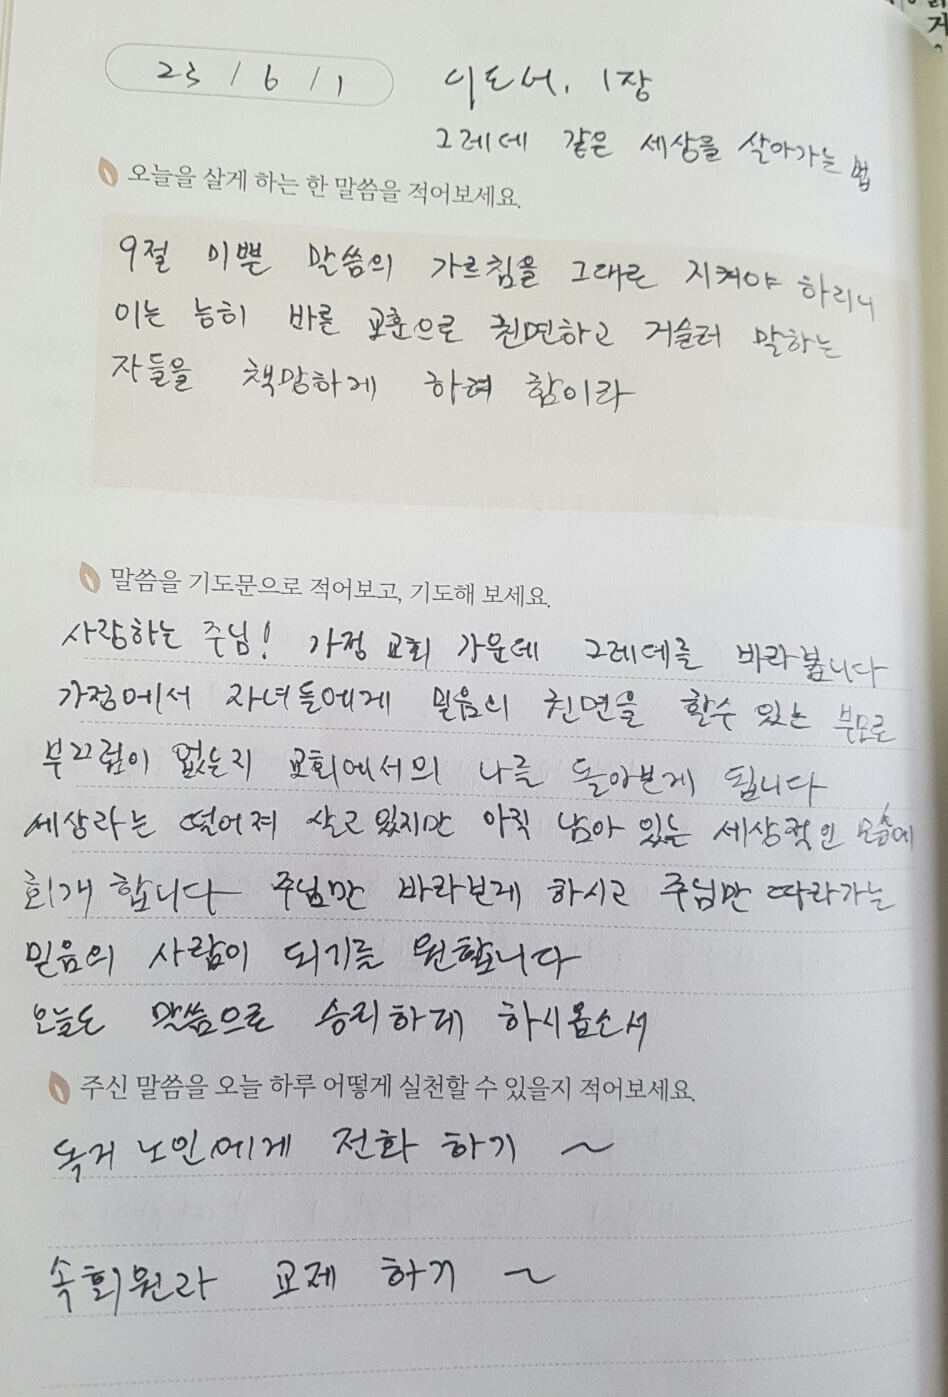 23 / 6 / 1 디도서. 1장
그레데 같은 세상을 살아가는 법
오늘을 살게 하는 한 말씀을 적어보세요.
9절 미쁜 말씀의 가르침을 그대로 지켜야 하리니
이는 능히 바른 교훈으로 권면하고 거슬러 말하는
자들을 책망하게 하려 함이라
말씀을 기도문으로 적어보고, 기도해 보세요.
사랑하는 주님! 가정 교회 가운데 그레데를 바라봅니다
가정에서 자녀들에게 믿음의 권면을 할수 있는 부모로
부끄럼이 없는지 교회에서의 나를 돌아보게 됩니다
세상과는 떨어져 살고 있지만 아직 남아 있는 세상적인 모습에
회개 합니다 주님만 바라보게 하시고 주님만 따라가는
믿음의 사람이 되기를 원합니다
오늘도 말씀으로 승리하게 하시옵소서
주신 말씀을 오늘 하루 어떻게 실천할 수 있을지 적어보세요.
독거 노인에게 전화 하기 ~
속회원과 교제 하기 ~